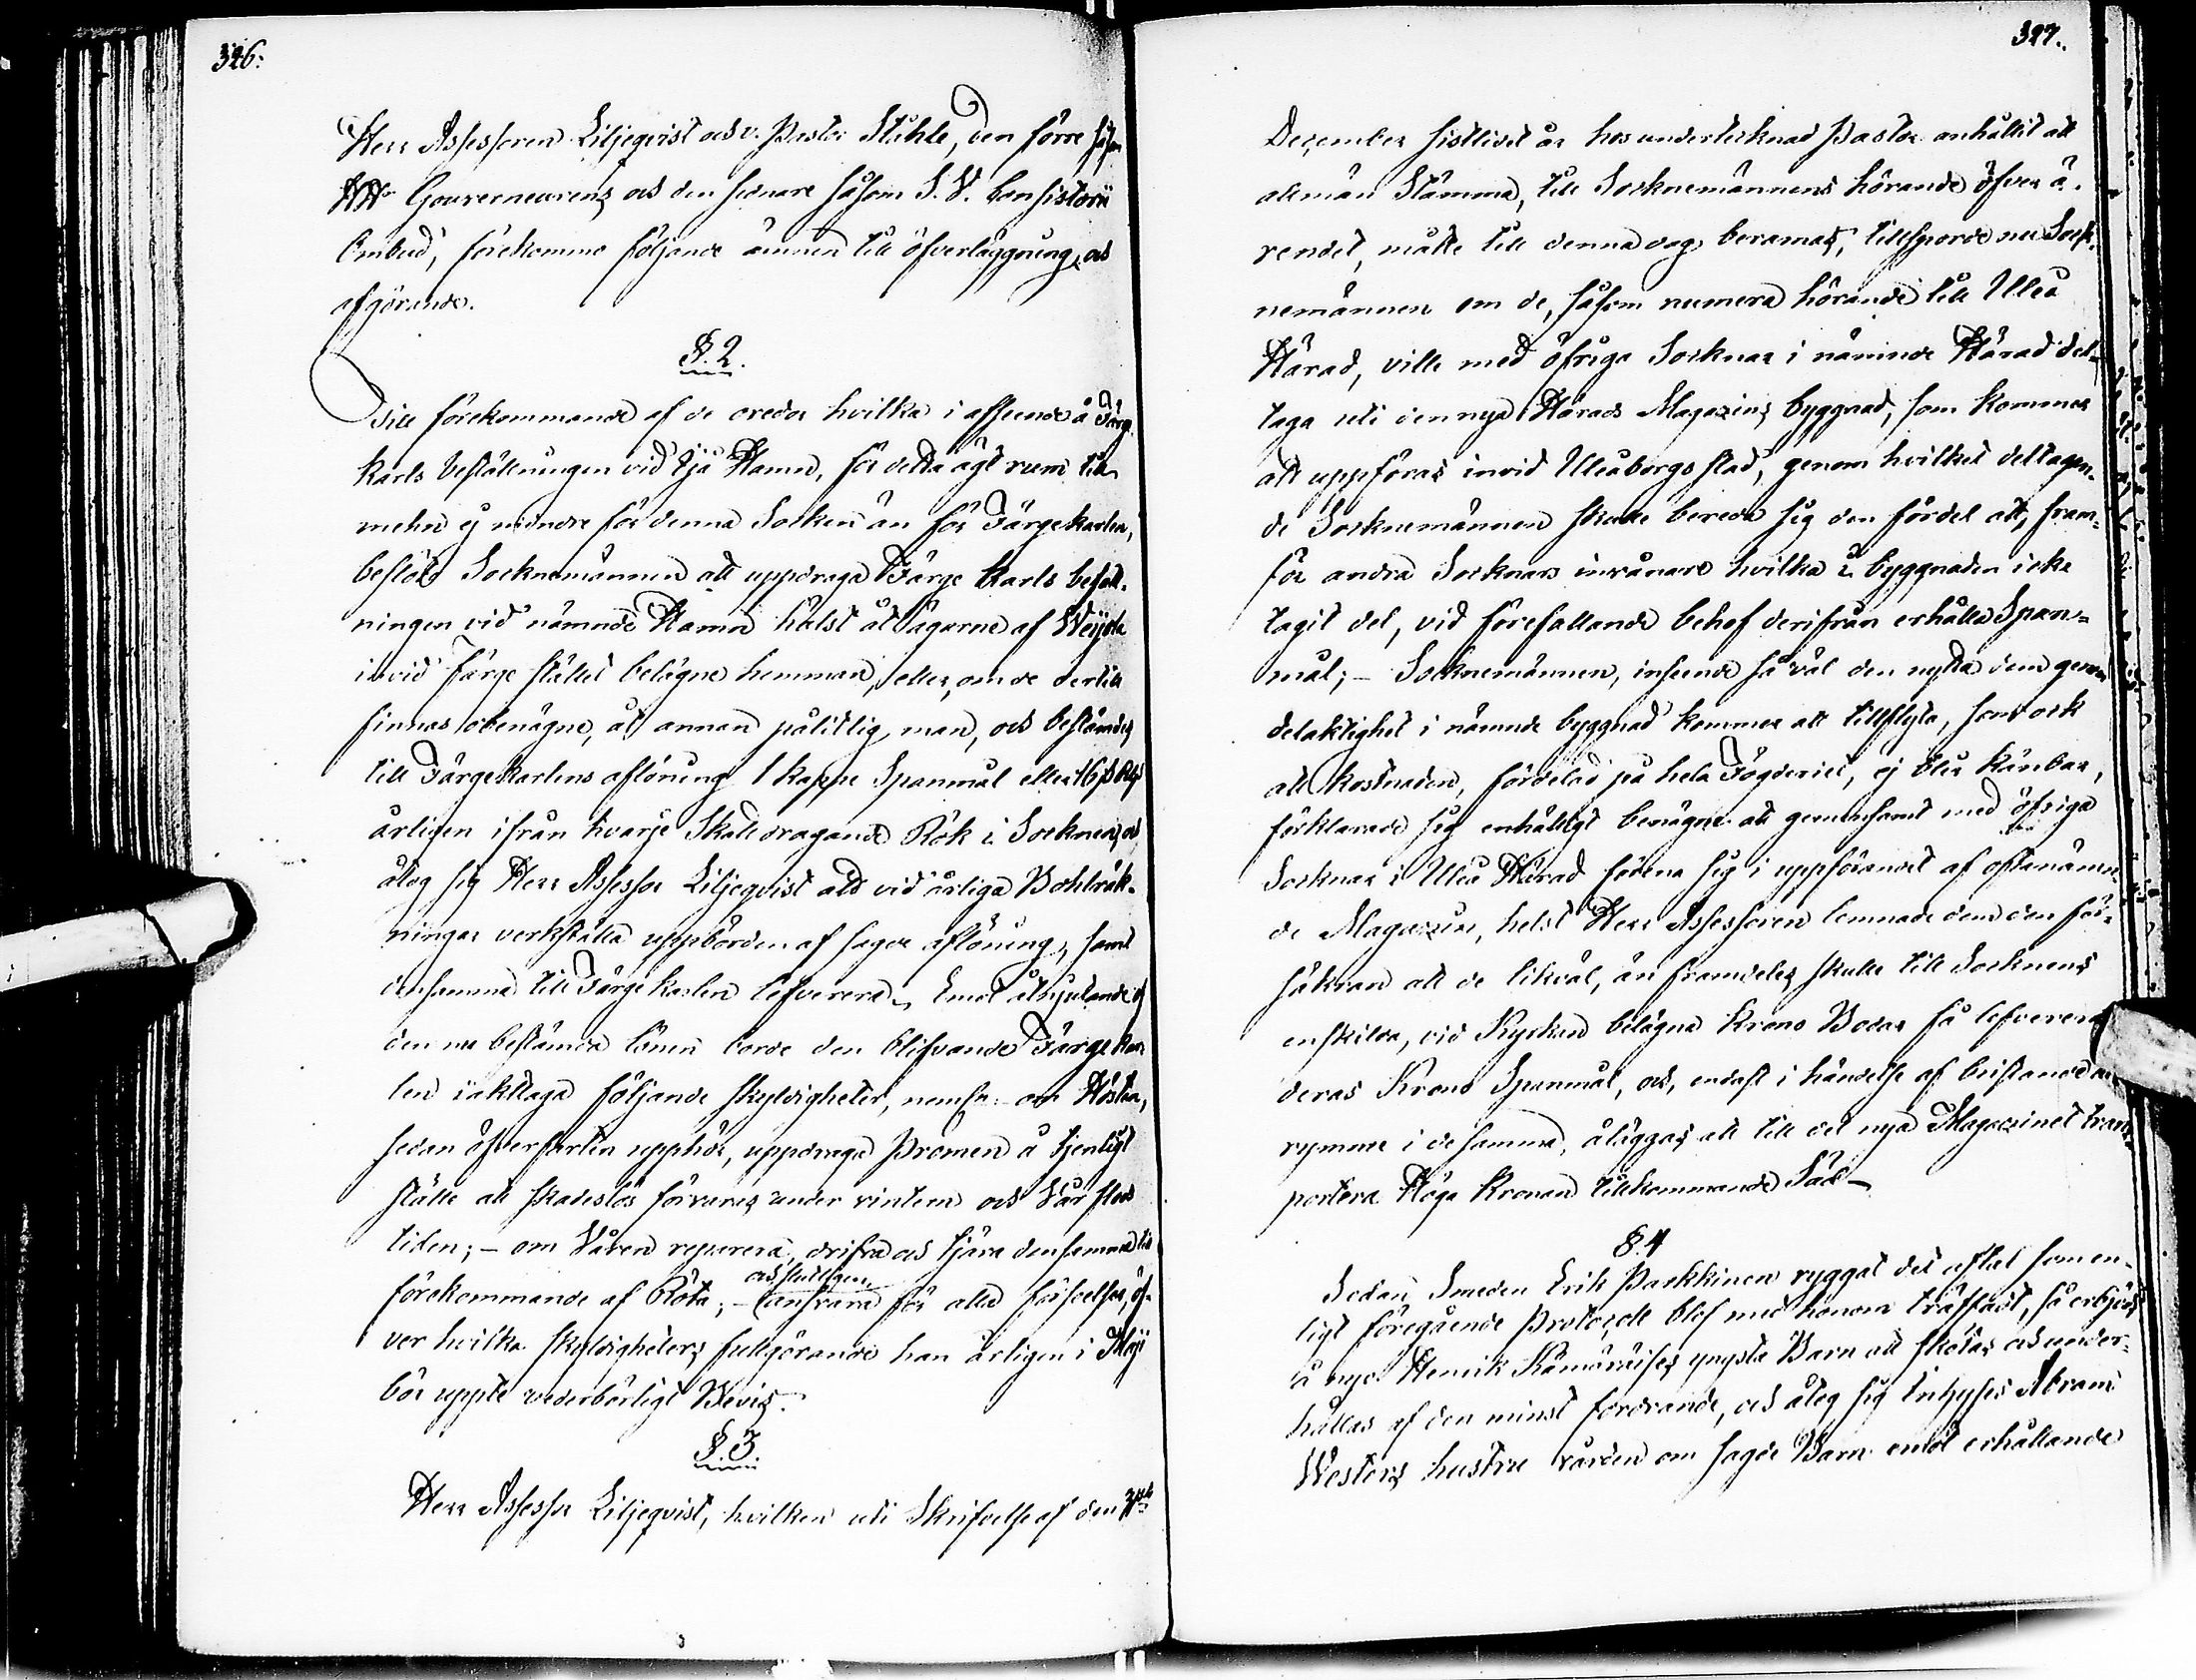 326.
Herr Assessoren Liljeqvist och v. Pastor Ståhle, den förre såsom
HHr Gouverneurens och den sednare såsom S. V. Consistorii
Ombud, förekommo följande ämnen till öfverläggning och
afgörande.
§. 2.
Till förekommande af de oredor hvilka i afseende å Färg-
karls beställningen vid Hamn, för detta ägt rum till
mehn ej mindre för denna Socken än för Färgekarlen,
beslöto Socknemännen att uppdraga Färge Karls beställ-
ningen vid nämnde Hamn hälst åt ägarne af
invid färge stället belägne hemman, eller, om de dertill
finnas obenägne, åt annan pålitlig man, och bestämdes
till Färgekarlens aflöning 1 kappe Spanmål eller 16
årligen ifrån hvarje Skattdragande Rök i Socknen, och
åtog sig Herr Assessor Liljeqvist att vid årliga Bohlräk-
ningar verkställa uppbörden af sagde aflöning, samt
densamma till Färgekarlen lefverera. Emot åtnjutande af
den nu bestämda lönen borde den blifvande Färgekar-
len iakttaga följande skyldigheter, neml. om Hösten,
sedan öfverfarten upphör, uppdraga Pråmen å tjenligt
ställe att skadeslös förvaras under vintern och Vår flod
tiden; – om Våren reparera, drifva och tjära densamma till
och slutligen
förekommande af Röta; – ansvara för alla förseelser, öf-
ver hvilka skyldigheters fullgörande han årligen i Maji
bör uppte vederbörligt Bevis.
§. 3.
Herr Assessor Liljeqvist, hvilken uti Skrifvelse af den
327.
December sistledit år hos undertecknad Pastor anhållit att
allmän Stämma, till Socknemännens hörande öfver ä-
rendet, måtte till denna dag beramas, tillsporde nu Sock-
nemännen om de, såsom numera hörande till Uleå
Härad, ville med öfriga Socknar i nämnde Härad del-
taga uti den nya Härads Magazins byggnad, som kommer
att uppföras invid Uleåborgs stad, genom hvilket deltagan-
de Socknemännen skulle bereda sig den fördel att, fram-
för andra Socknars invånare hvilka i byggnaden icke
tagit del, vid förefallande behof derifrån erhålla Span-
mål; – Socknemännen, inseende så väl den nytta dem genom
delaktighet i nämnde byggnad kommer att tillflyta, som ock
att kostnaden, fördelad på hela Fögderiet, ej blir känbar,
förklarade sig enhälligt benägne att gemensamt med öfriga
Socknar i Uleå Härad förena sig i uppförandet af oftanämn-
de Magazin, helst Herr Assessoren lemnade dem den för-
säkran att de likväl, än framdeles skulle till Socknens
enskilda, vid Kyrkan belägna Krono Bodar få lefverera
deras Krono Spanmål, och, endast i händelse af bristande
rymme i de samma, åläggas att till det nya Magazinet trans-
portera Höga Kronan tillkommande Säd –
§. 4
Sedan Smeden Erik Parkkinen ryggat det aftal som en-
ligt föregående Protocoll blef med honom träffadt, så erbjöds
å nyo Henrik Kämäräises yngsta Barn att skötas och under-
hållas af den minst fordrande, och åtog sig Inhyses Abram
Westers hustru vården om sagde Barn emot erhållande